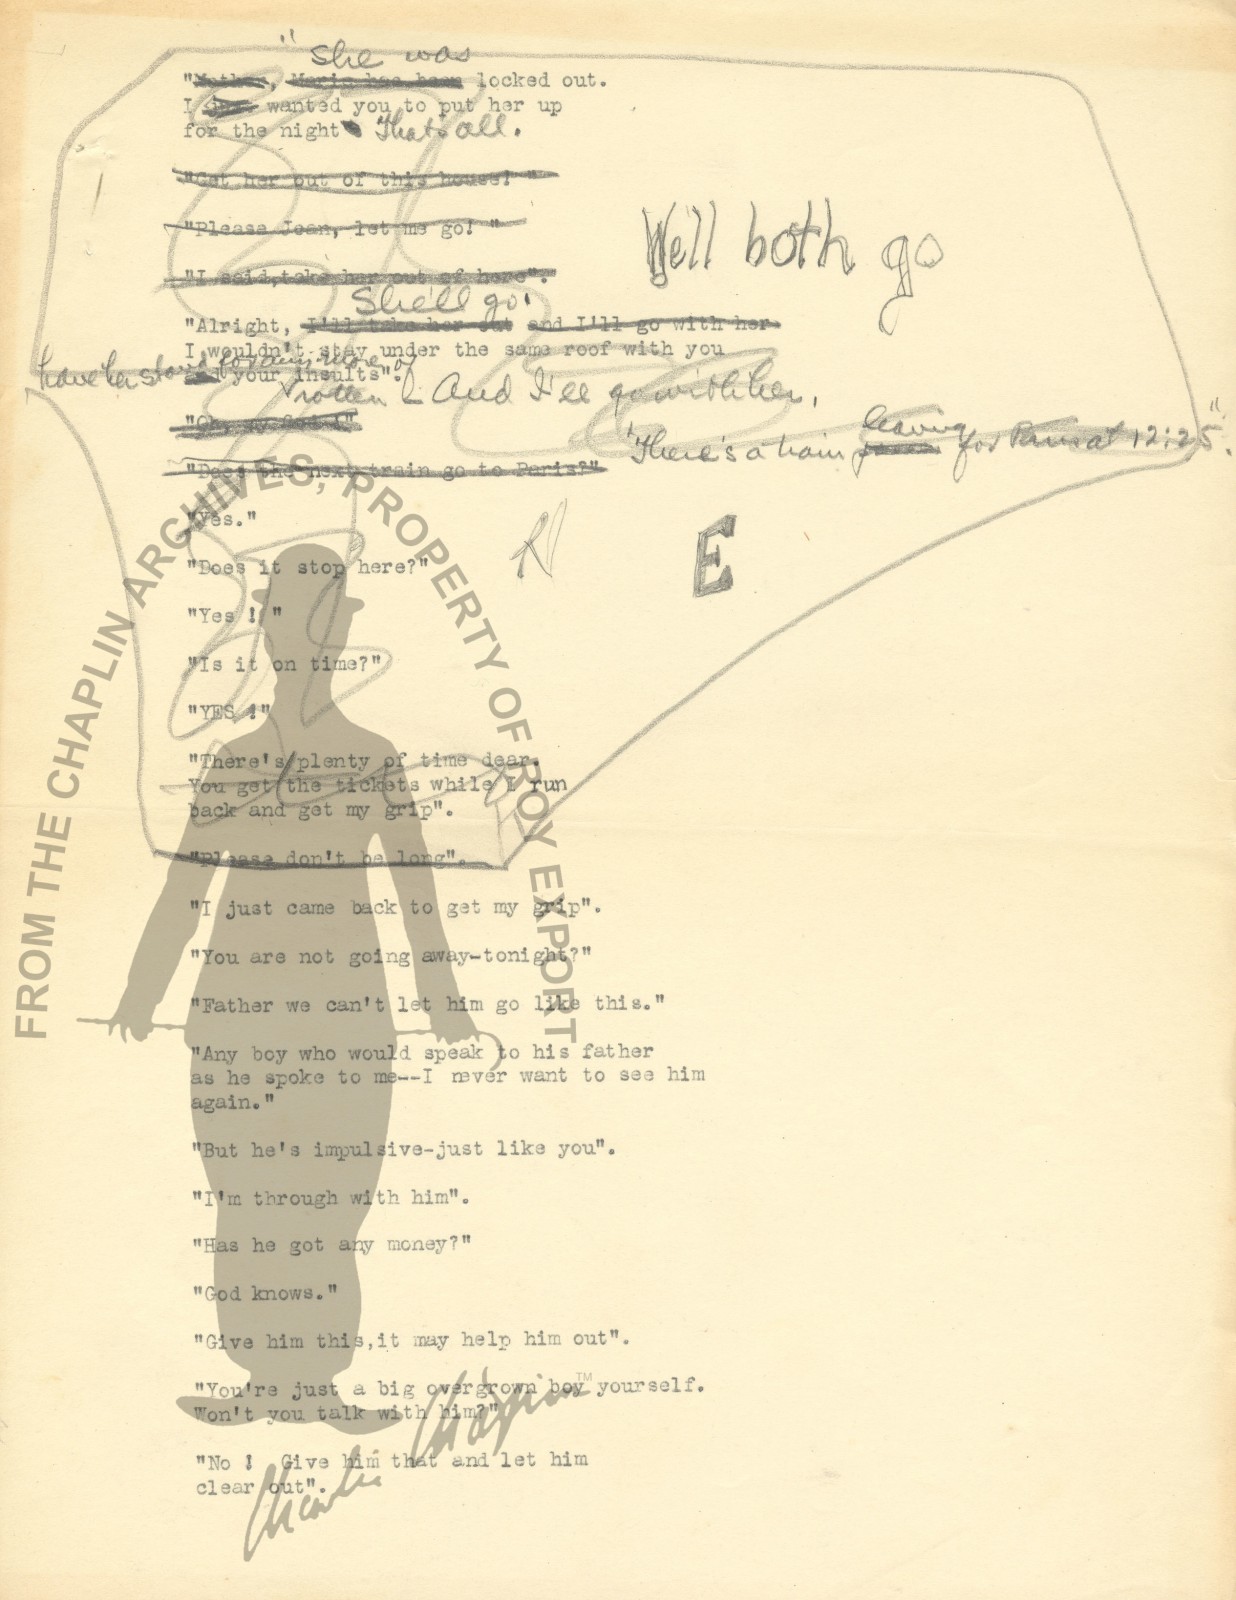 " She was
"Mother, Marie has been locked out.
I just wanted you to put her up
for the night That's all.
"Get her out of this house! "
"Please Jean, let me go! "
We'll both go
"I said,take her out of here".
She'll go!
"Alright, I'll take her out and I'll go with her
I wouldn't stay under the same roof with you
have her stand for any more of
and your insults".
rotten And I'll go with her.
"Oh, my God !"
leaving
"There's a train for Paris at 12:25".
"Does the next train go to Paris?"
"Yes."
E
"Does it stop here?"
"Yes ! "
"Is it on time?"
"YES !"
"There's plenty of time dear.
You get the tickets while I run
back and get my grip".
"Please don't be long".
"I just came back to get my grip".
"You are not going away-tonight?"
"Father we can't let him go like this."
"Any boy who would speak to his father
as he spoke to me--I never want to see him
again."
"But he's impulsive-just like you".
"I'm through with him".
"Has he got any money?"
"God knows."
"Give him this,it may help him out".
"You're just a big overgrown boy yourself.
Won't you talk with him?"
"No ! Give him that and let him
clear out".
FROM THE CHAPLIN ARCHIVES, PROPERTY OF ROY EXPORT
Charlie Chaplin TM